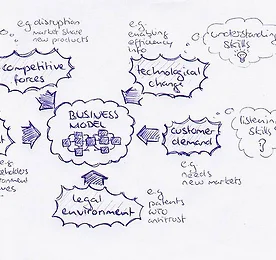 e.g. disruption
market share
new products
competitive
forces
e.g.
enabling
efficiency
info
technological
change
understanding
skills
BUSINESS
MODEL
customer
demand
listening
skills
e.g.
needs
new markets
e.g.
legal
environment
e.g.
patents
WTO
antitrust